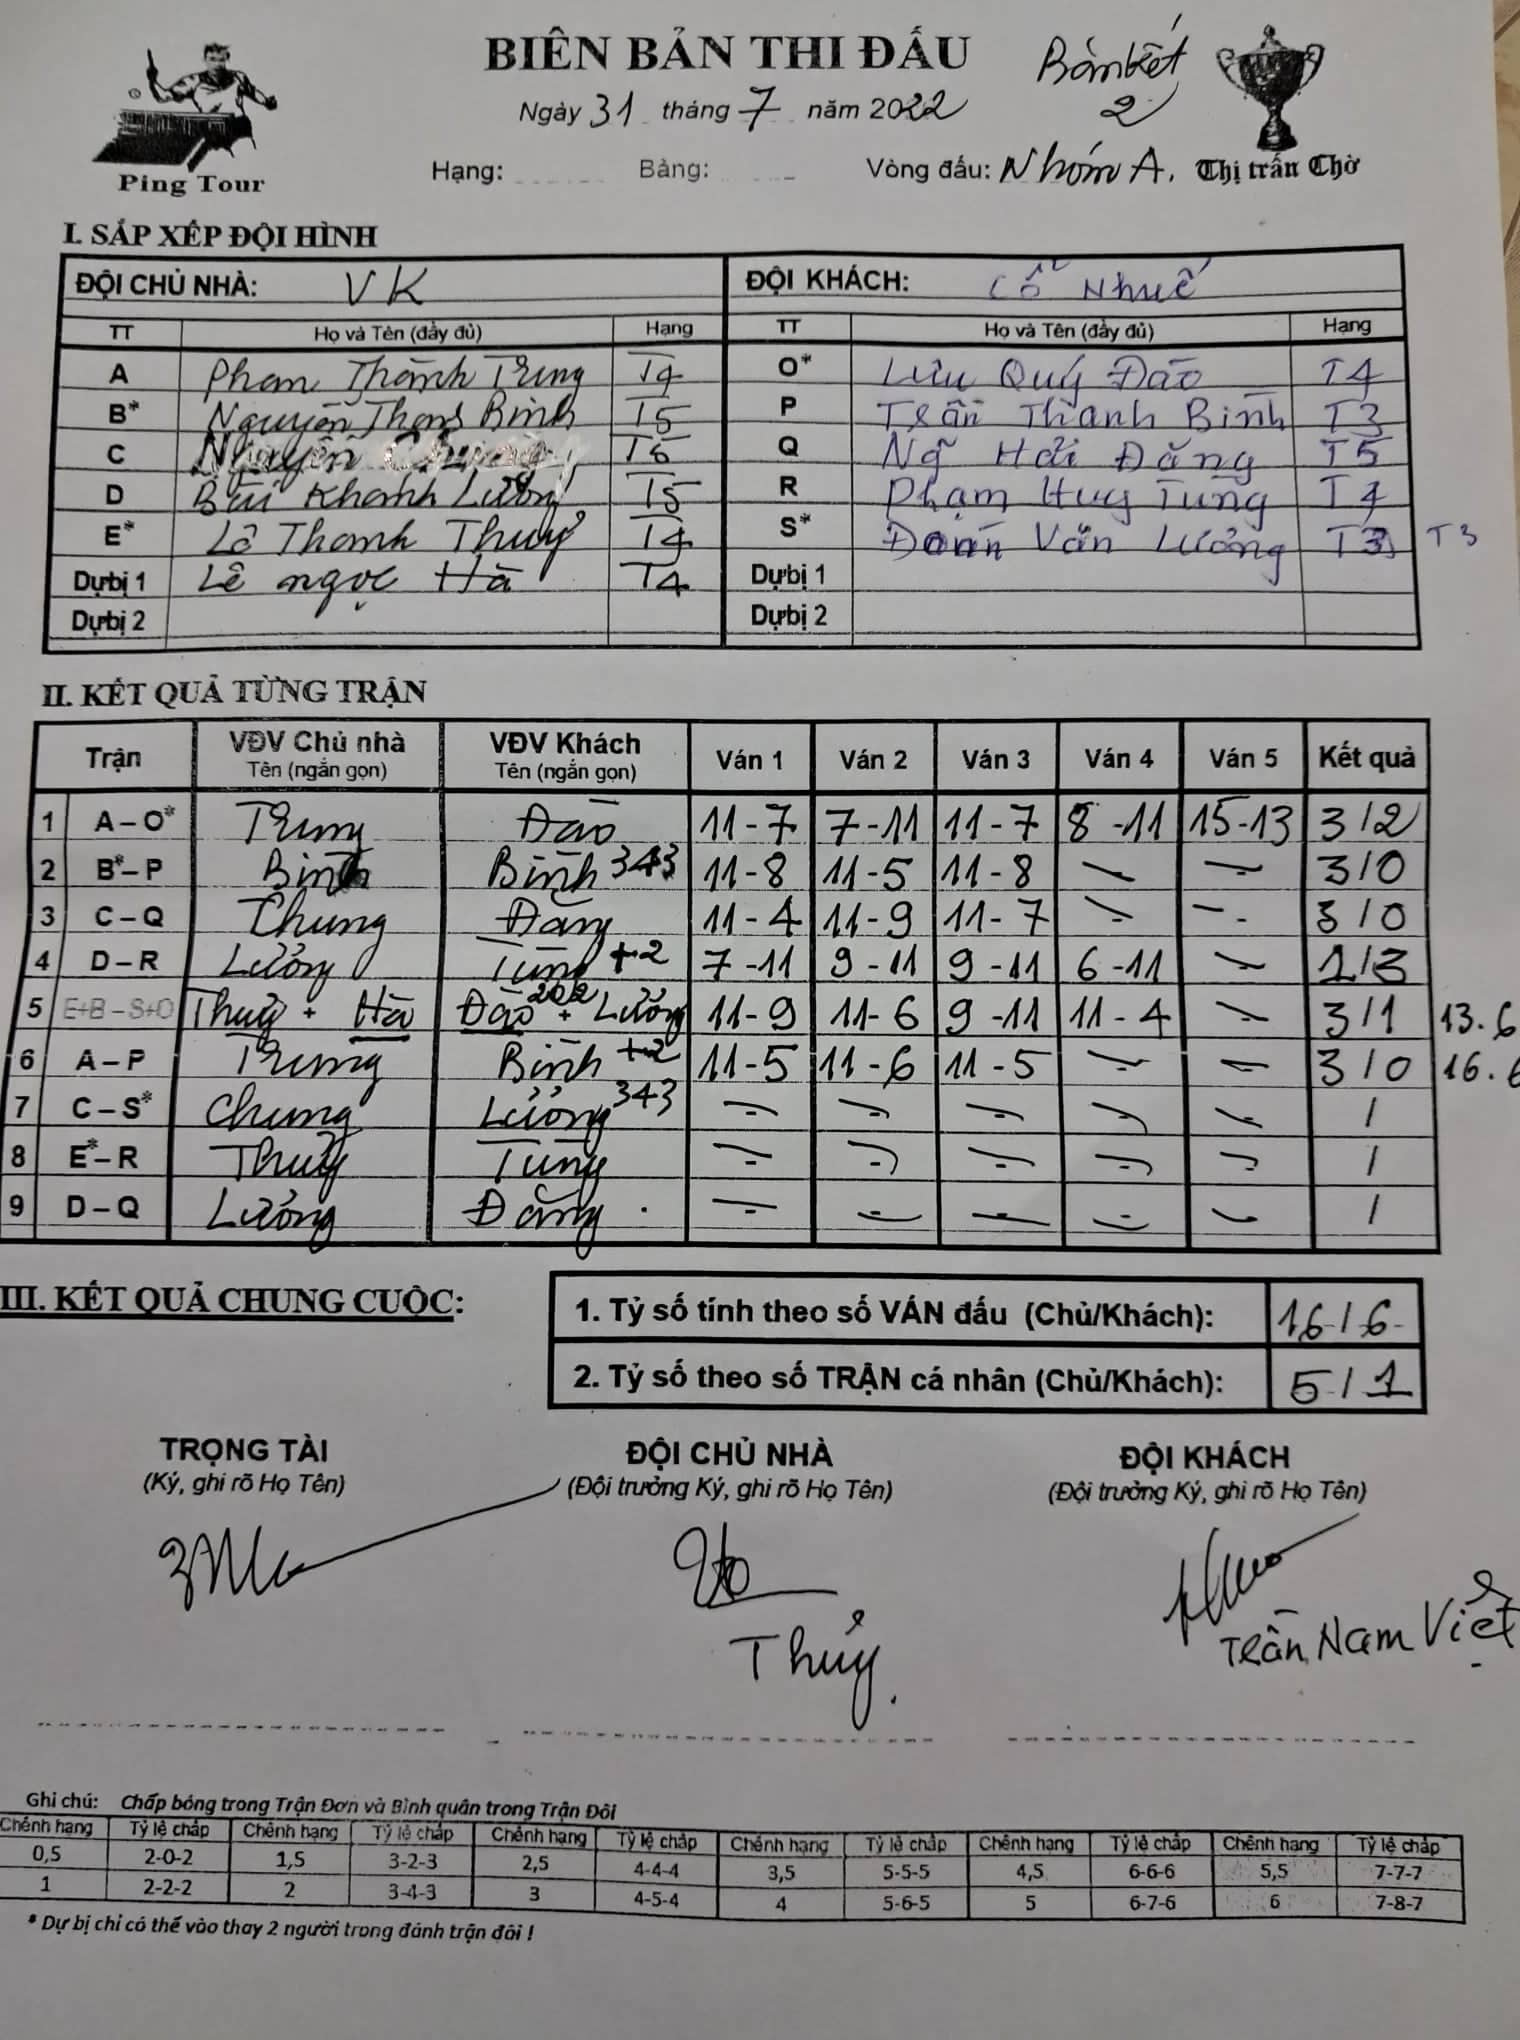 BIÊN BẢN THI ĐẤU
Bán kết 2
Ngày 31 tháng 7 năm 2022
Ping Tour
Hạng: Bảng: Vòng đấu: Nhóm A. Thị trấn Chờ
I. SẮP XẾP ĐỘI HÌNH
ĐỘI CHỦ NHÀ: VK ĐỘI KHÁCH: Cổ Nhuế
TT Họ và Tên (đầy đủ) Hạng TT Họ và Tên (đầy đủ) Hạng
A Phan Thành Trung T4 O* Lưu Quý Đào T4
B* Nguyễn Thong Bình T5 P Trần Thanh Bình T3
C Nguyễn Chung Q Ng Hải Đăng T5
D Bùi Khanh Lưỡng T5 R Phạm Huy Tùng T4
E* Lê Thanh Thuỷ T4 S* Văn Lưỡng T3 T3
Dự bị 1 Lê Ngọc Hà T4 Dự bị 1
Dự bị 2 Dự bị 2
II. KẾT QUẢ TỪNG TRẬN
Trận VĐV Chủ nhà VĐV Khách Ván 1 Ván 2 Ván 3 Ván 4 Ván 5 Kết quả
Tên (ngắn gọn) Tên (ngắn gọn)
1 A – O* Trung Đào 11-7 7-11 11-7 8-11 15-13 3/2
2 B* – P Bình Bình 343 11-8 11-5 11-8 - - 3/0
3 C – Q Chung Đăng 11-4 11-9 11-7 - - 3/0
4 D – R Lưỡng Tùng +2 7-11 9-11 9-11 6-11 - /3
5 E+B – S+O Thuỷ + Hà Đào 202 + Lưỡng 11-9 11-6 9-11 11-4 - 3/1 13.6
6 A – P Trung Bình +2 11-5 11-6 11-5 - - 3/0 16.6
7 C – S* Chung Lưỡng 343 - - - - - /
8 E* – R Thuỷ Tùng - - - - - /
9 D – Q Lưỡng Đăng - - - - - /
III. KẾT QUẢ CHUNG CUỘC:
1. Tỷ số tính theo số VÁN đấu (Chủ/Khách): 16/6
2. Tỷ số theo số TRẬN cá nhân (Chủ/Khách): 5/1
TRỌNG TÀI ĐỘI CHỦ NHÀ ĐỘI KHÁCH
(Ký, ghi rõ Họ Tên) (Đội trưởng Ký, ghi rõ Họ Tên) (Đội trưởng Ký, ghi rõ Họ Tên)
Thủy. Trần Nam Việt
Ghi chú: Chấp bóng trong Trận Đơn và Bình quân trong Trận Đôi
Chênh hạng Tỷ lệ chấp Chênh hạng Tỷ lệ chấp Chênh hạng Tỷ lệ chấp Chênh hạng Tỷ lệ chấp Chênh hạng Tỷ lệ chấp Chênh hạng Tỷ lệ chấp
0,5 2-0-2 1,5 3-2-3 2,5 4-4-4 3,5 5-5-5 4,5 6-6-6 5,5 7-7-7
1 2-2-2 2 3-4-3 3 4-5-4 4 5-6-5 5 6-7-6 6 7-8-7
* Dự bị chỉ có thể vào thay 2 người trong đánh trận đôi !